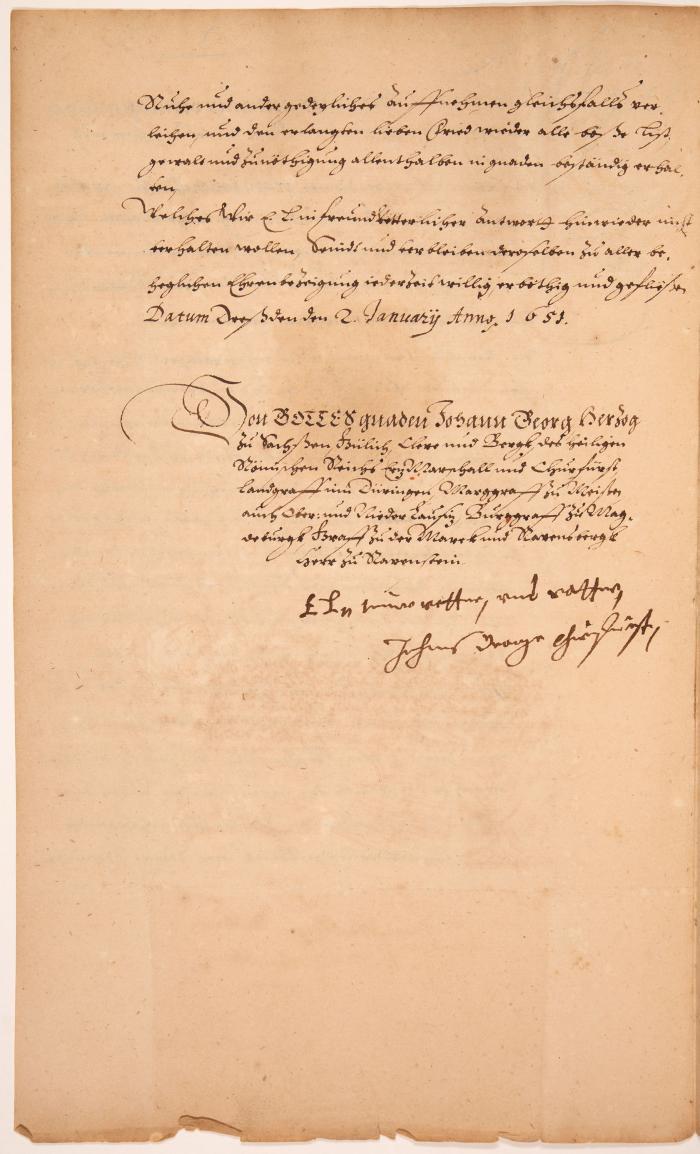 Ruhe und ander gedeyliches auffnehmen gleichsfalls ver-
leihen, und den erlangten lieben Fried wieder alle böße List,
gewalt und zunöthigung allenthalben in gnaden beständig erhal-
ten,
Welches Wir E. L. in freundvetterlicher Antwortt hinwieder nicht
verhalten wollen, Seindt und verbleiben deroselben zu aller be-
heglichen Ehrenbezeigung iederzeit willig erböthig und geflißen
Datum Dreßden den 2. January Anno, 1651.
Von GOTTES gnaden Johann Georg Herzog
zu Sachßen Jülich, Cleve und Bergk, des heiligen
Römischen Reichs ErzMarschall und Churfürst,
Landgraff inn Düringen, Marggraff zu Meißen
auch Ober: und Nieder Lausitz, Burggraff zu Mag-
deburgk Graff zu der Marck und Ravensbergk
Herr zu Ravenstein
vetter, und
Johans George Churfürst,